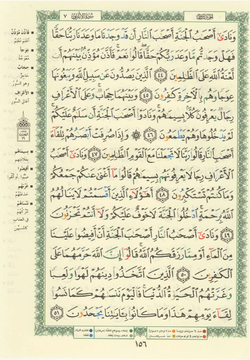 وَنَادَىٰٓ أَصْحَٰبُ ٱلْجَنَّةِ أَصْحَٰبَ ٱلنَّارِ أَن قَدْ وَجَدْنَا مَا وَعَدَنَا رَبُّنَا حَقًّا
فَهَلْ وَجَدتُّم مَّا وَعَدَ رَبُّكُمْ حَقًّا قَالُوا۟ نَعَمْ فَأَذَّنَ مُؤَذِّنٌۢ بَيْنَهُمْ أَن
لَّعْنَةُ ٱللَّهِ عَلَى ٱلظَّٰلِمِينَ ٤٤ ٱلَّذِينَ يَصُدُّونَ عَن سَبِيلِ ٱللَّهِ وَيَبْغُونَهَا
عِوَجًا وَهُم بِٱلْءَاخِرَةِ كَٰفِرُونَ ٤٥ وَبَيْنَهُمَا حِجَابٌ وَعَلَى ٱلْأَعْرَافِ
رِجَالٌ يَعْرِفُونَ كُلًّۢا بِسِيمَىٰهُمْ وَنَادَوْا۟ أَصْحَٰبَ ٱلْجَنَّةِ أَن سَلَٰمٌ عَلَيْكُمْ
لَمْ يَدْخُلُوهَا وَهُمْ يَطْمَعُونَ ٤٦ وَإِذَا صُرِفَتْ أَبْصَٰرُهُمْ تِلْقَآءَ
أَصْحَٰبِ ٱلنَّارِ قَالُوا۟ رَبَّنَا لَا تَجْعَلْنَا مَعَ ٱلْقَوْمِ ٱلظَّٰلِمِينَ ٤٧ وَنَادَىٰٓ
أَصْحَٰبُ ٱلْأَعْرَافِ رِجَالًا يَعْرِفُونَهُم بِسِيمَىٰهُمْ قَالُوا۟ مَآ أَغْنَىٰ عَنكُمْ جَمْعُكُمْ
وَمَا كُنتُمْ تَسْتَكْبِرُونَ ٤٨ أَهَٰٓؤُلَآءِ ٱلَّذِينَ أَقْسَمْتُمْ لَا يَنَالُهُمُ
ٱللَّهُ بِرَحْمَةٍ ٱدْخُلُوا۟ ٱلْجَنَّةَ لَا خَوْفٌ عَلَيْكُمْ وَلَآ أَنتُمْ تَحْزَنُونَ
٤٩ وَنَادَىٰٓ أَصْحَٰبُ ٱلنَّارِ أَصْحَٰبَ ٱلْجَنَّةِ أَنْ أَفِيضُوا۟ عَلَيْنَا
مِنَ ٱلْمَآءِ أَوْ مِمَّا رَزَقَكُمُ ٱللَّهُ قَالُوٓا۟ إِنَّ ٱللَّهَ حَرَّمَهُمَا عَلَى
ٱلْكَٰفِرِينَ ٥٠ ٱلَّذِينَ ٱتَّخَذُوا۟ دِينَهُمْ لَهْوًا وَلَعِبًا
وَغَرَّتْهُمُ ٱلْحَيَوٰةُ ٱلدُّنْيَا فَٱلْيَوْمَ نَنسَىٰهُمْ كَمَا نَسُوا۟
لِقَآءَ يَوْمِهِمْ هَٰذَا وَمَا كَانُوا۟ بِـَٔايَٰتِنَا يَجْحَدُونَ ٥١
١٥٦